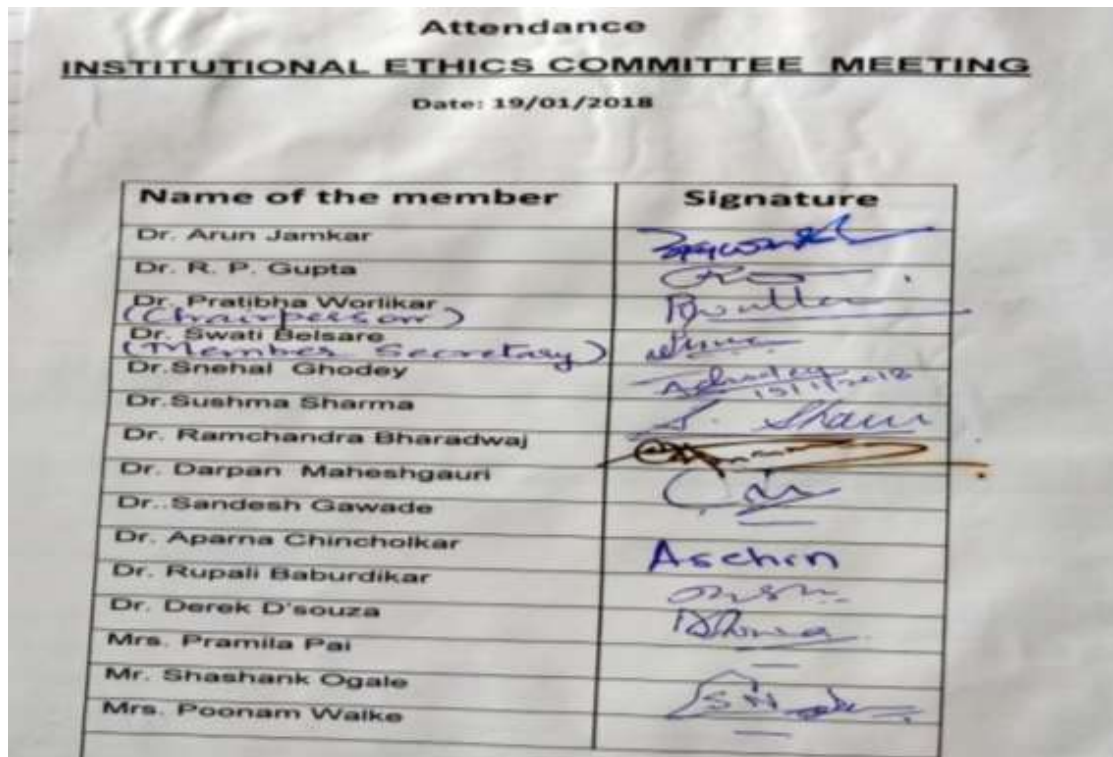 Attendance
INSTITUTIONAL ETHICS COMMITTEE MEETING
Date: 19/01/2018
Name of the member Signature
Dr. Arun Jamkar
Dr. R. P. Gupta
Dr. Pratibha Worlikar
(Chairperson)
Dr. Swati Belsare
(Member Secretary)
Dr.Snehal Ghodey
Dr.Sushma Sharma S. Sharm
Dr. Ramchandra Bharadwaj
Dr. Darpan Maheshgauri
Dr..Sandesh Gawade —
Dr. Aparna Chincholkar Aschin
Dr. Rupali Baburdikar
Dr. Derek D'souza
Mrs. Pramila Pai —
Mr. Shashank Ogale
Mrs. Poonam Walke —